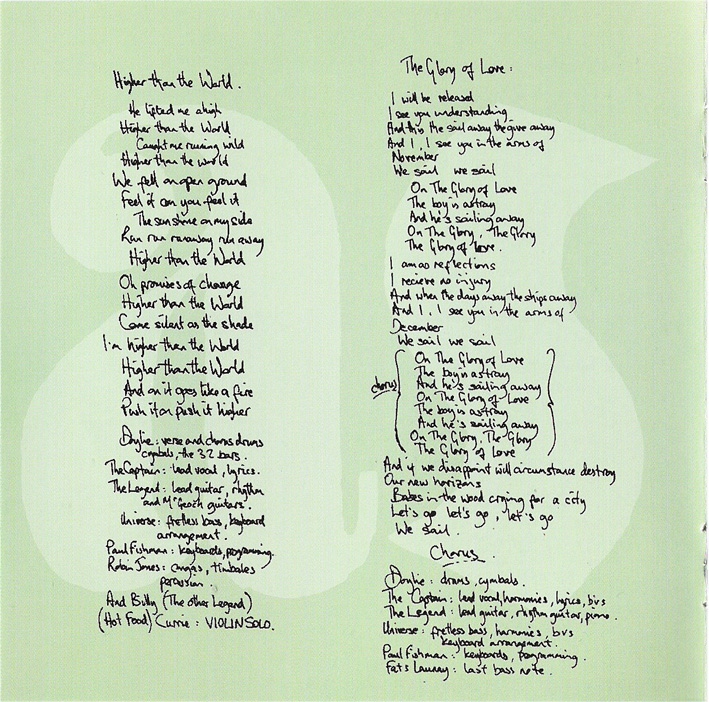 Higher than the World.
He lifted me ahigh
Higher than the World
Caught me running wild
Higher than the world
We fell on open ground
Feel it can you feel it
The sunshine on my side
Run run runaway run away
Higher than the World
Oh promises of change
Higher than the World
Come silent as the shade
I'm higher than the World
Higher than the World
And on it goes like a fire
Push it on push it higher
Doylie: verse and chorus drums
cymbals, the 32 bars.
The Captain: lead vocal, lyrics.
The Legend: lead guitar, rhythm
and McGeoch guitars.
Universe: fretless bass, keyboard
arrangement.
Paul Fishman: keyboards, programming.
Robin Jones: congas, timbales
percussian.
And Billy (The other Legend)
(Hot Food) Currie: VIOLIN SOLO.
The Glory of Love:
I will be released
I see you understanding
And this the sail away the give away
And I, I see you in the arms of
November
We sail we sail
On The Glory of Love
The boy is astray
And he's sailing away
On The Glory, The Glory
The Glory of Love.
I am as reflections
I recieve no injury
And when the days away the ships away
And I, I see you in the arms of
December
We sail we sail
chorus
On The Glory of Love
The boy is astray
And he's sailing away
On The Glory of Love
The boy is astray
And he's sailing away
On The Glory, The Glory
The Glory of Love
And if we disapoint will circumstance destroy
Our new horizons
Babes in the wood crying for a city
Let's go let's go, let's go
We sail.
Chorus.
Doylie: drums, cymbals.
The Captain: lead vocal, harmonies, lyrics, bvs
The Legend: lead guitar, rhythm guitar, piano.
Universe: fretless bass, harmonies, bvs
keyboard arrangement.
Paul Fishman: keyboards, programming.
Fats Launay: last bass note.